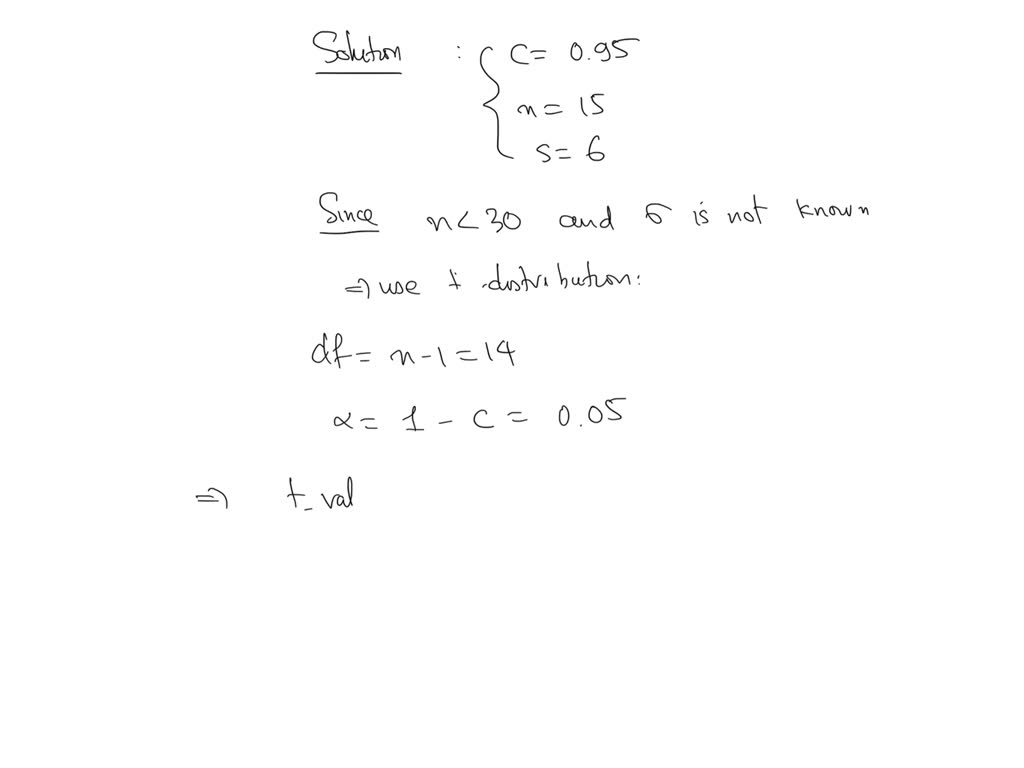 Solution : { C = 0.95
n = 15
s = 6
Since n < 30 and σ is not known
⇒ use t-distribution:
df = n - 1 = 14
α = 1 - C = 0.05
⇒ t_val